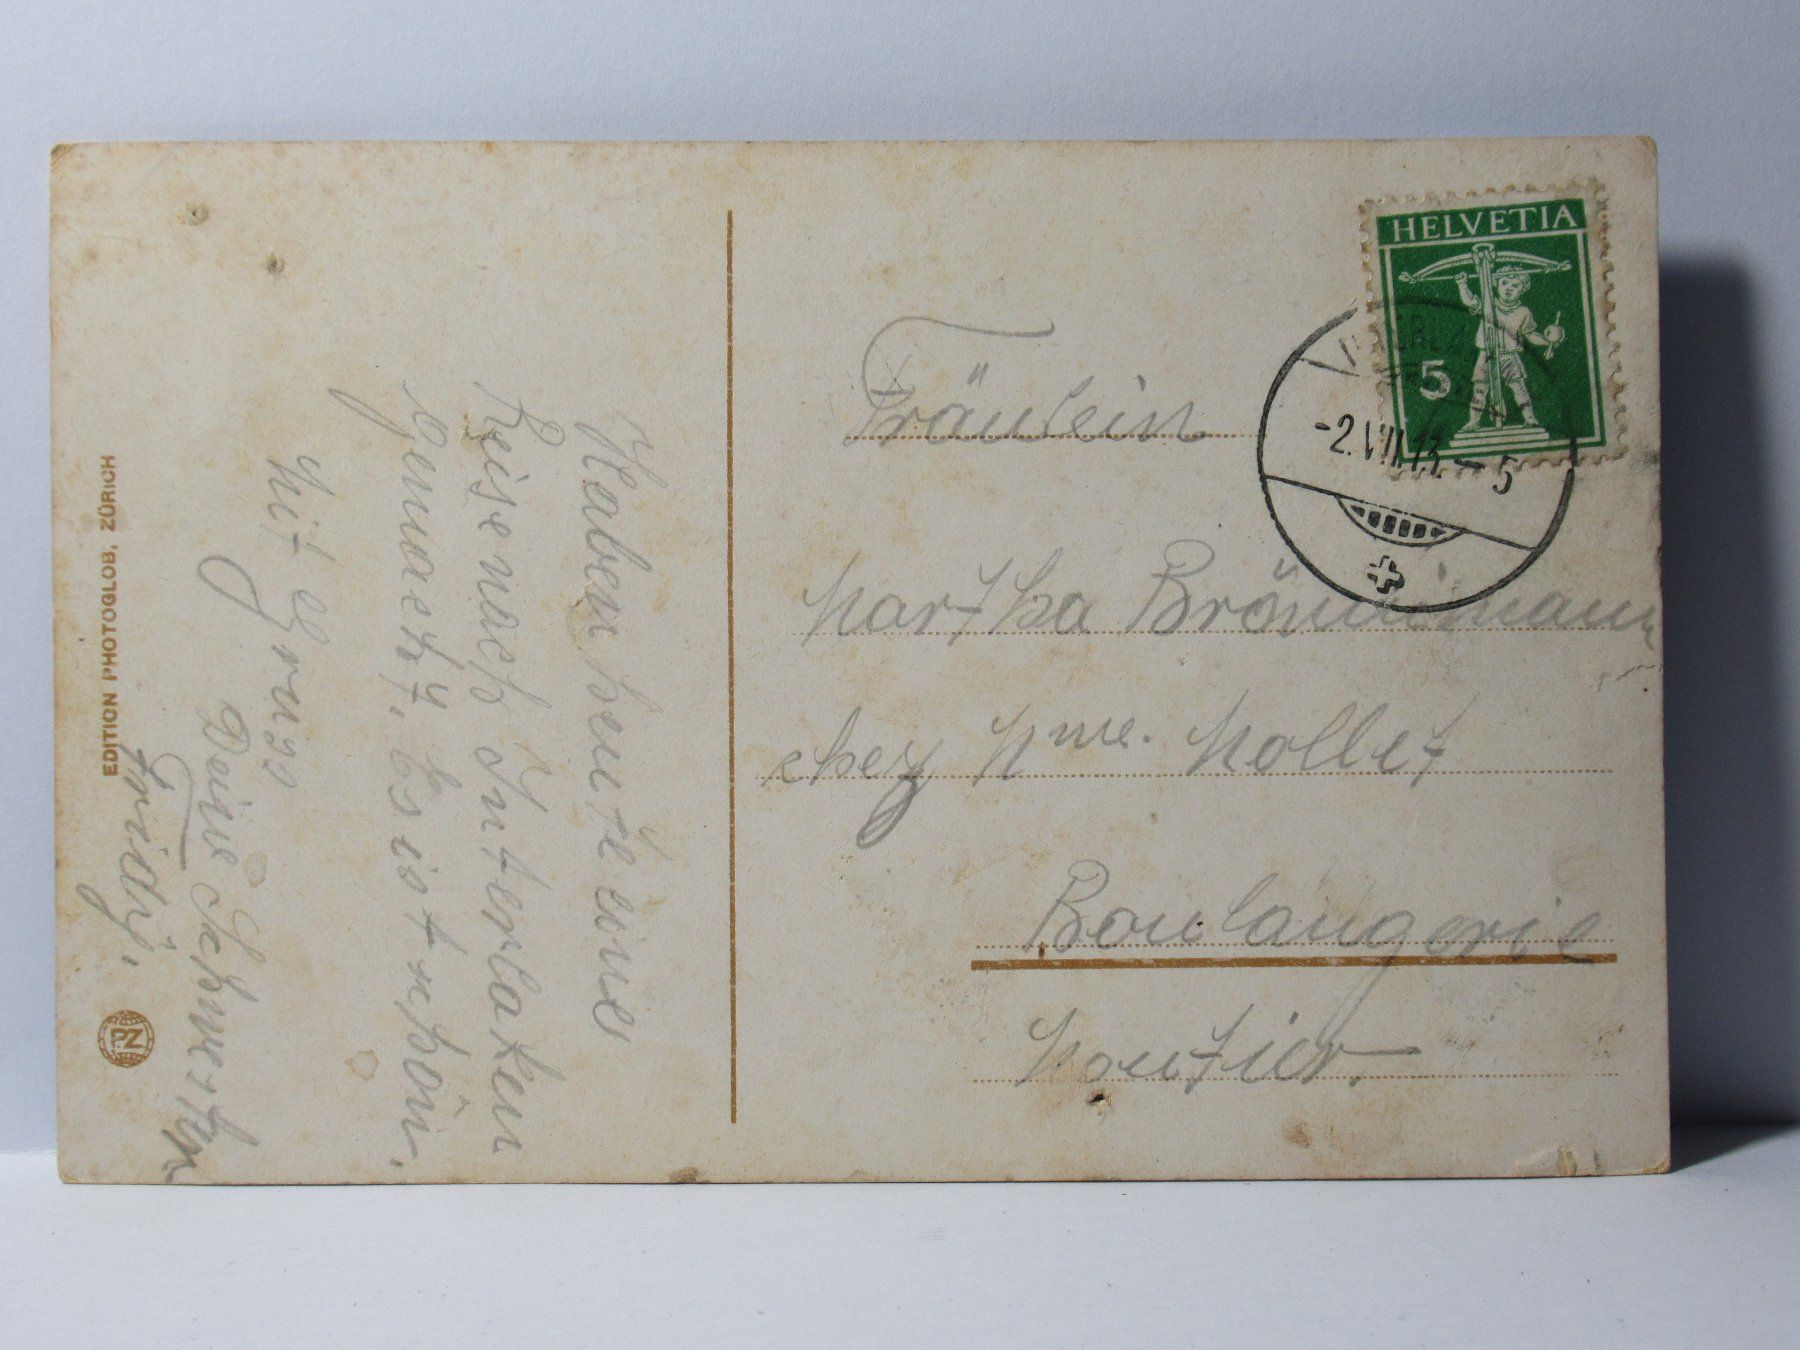 Haben heute eine
Reise nach Interlaken
gemacht, Es ist schön.
Mit Gruss
Deine Schwester
Fridy.
EDITION PHOTOGLOB, ZÜRICH
PZ
HELVETIA
5
-2.VII.13.-5
Fräulein
Martha Brönnimann
chez Mme. Mollet
Boulangerie
Moutier.